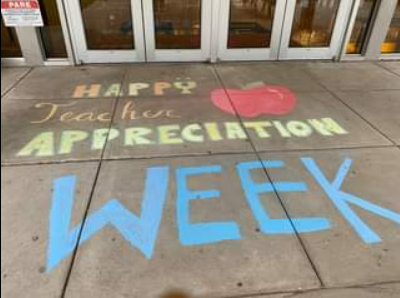 PARK
HAPPY
Teacher
APPRECIATION
WEEK